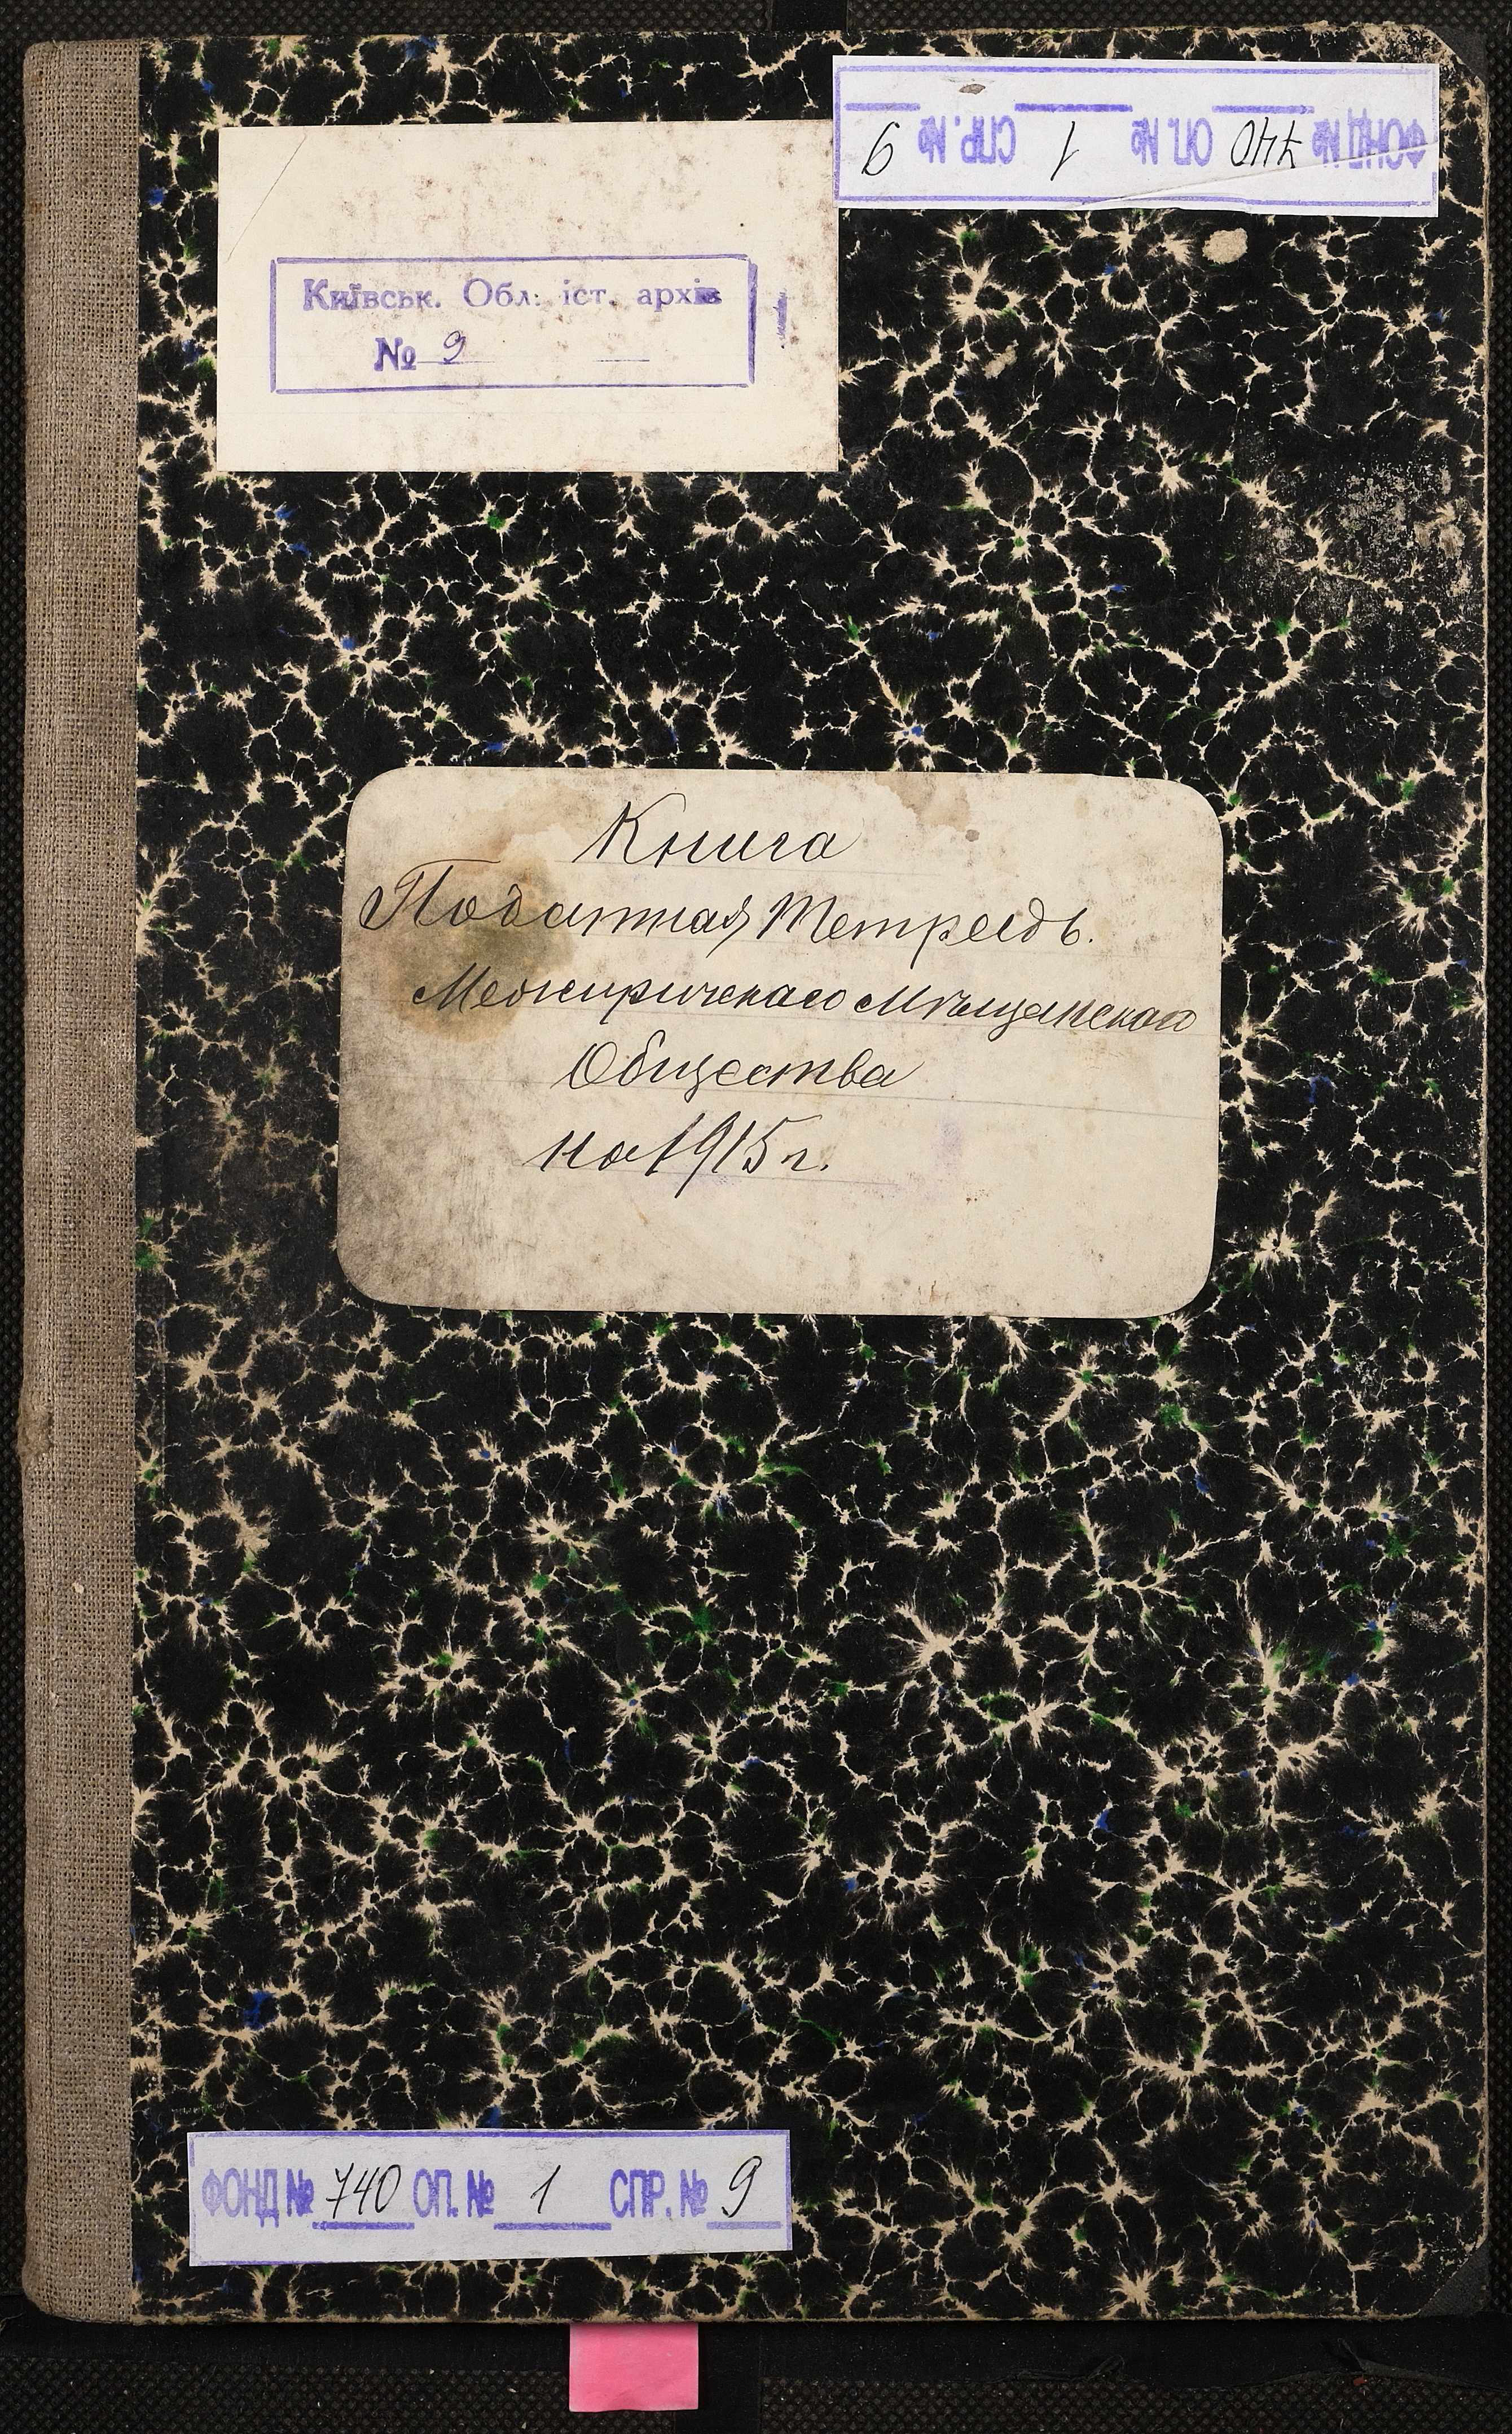 ФОНД № 740 ОП. № 1 СПР. № 9
Київськ. Обл. іст. архів
№ 9
Книга
Податная Тетрадь.
Межиричскаго Мѣщанскаго
Общества
на 1915 г.
ФОНД № 740 ОП. № 1 СПР. № 9